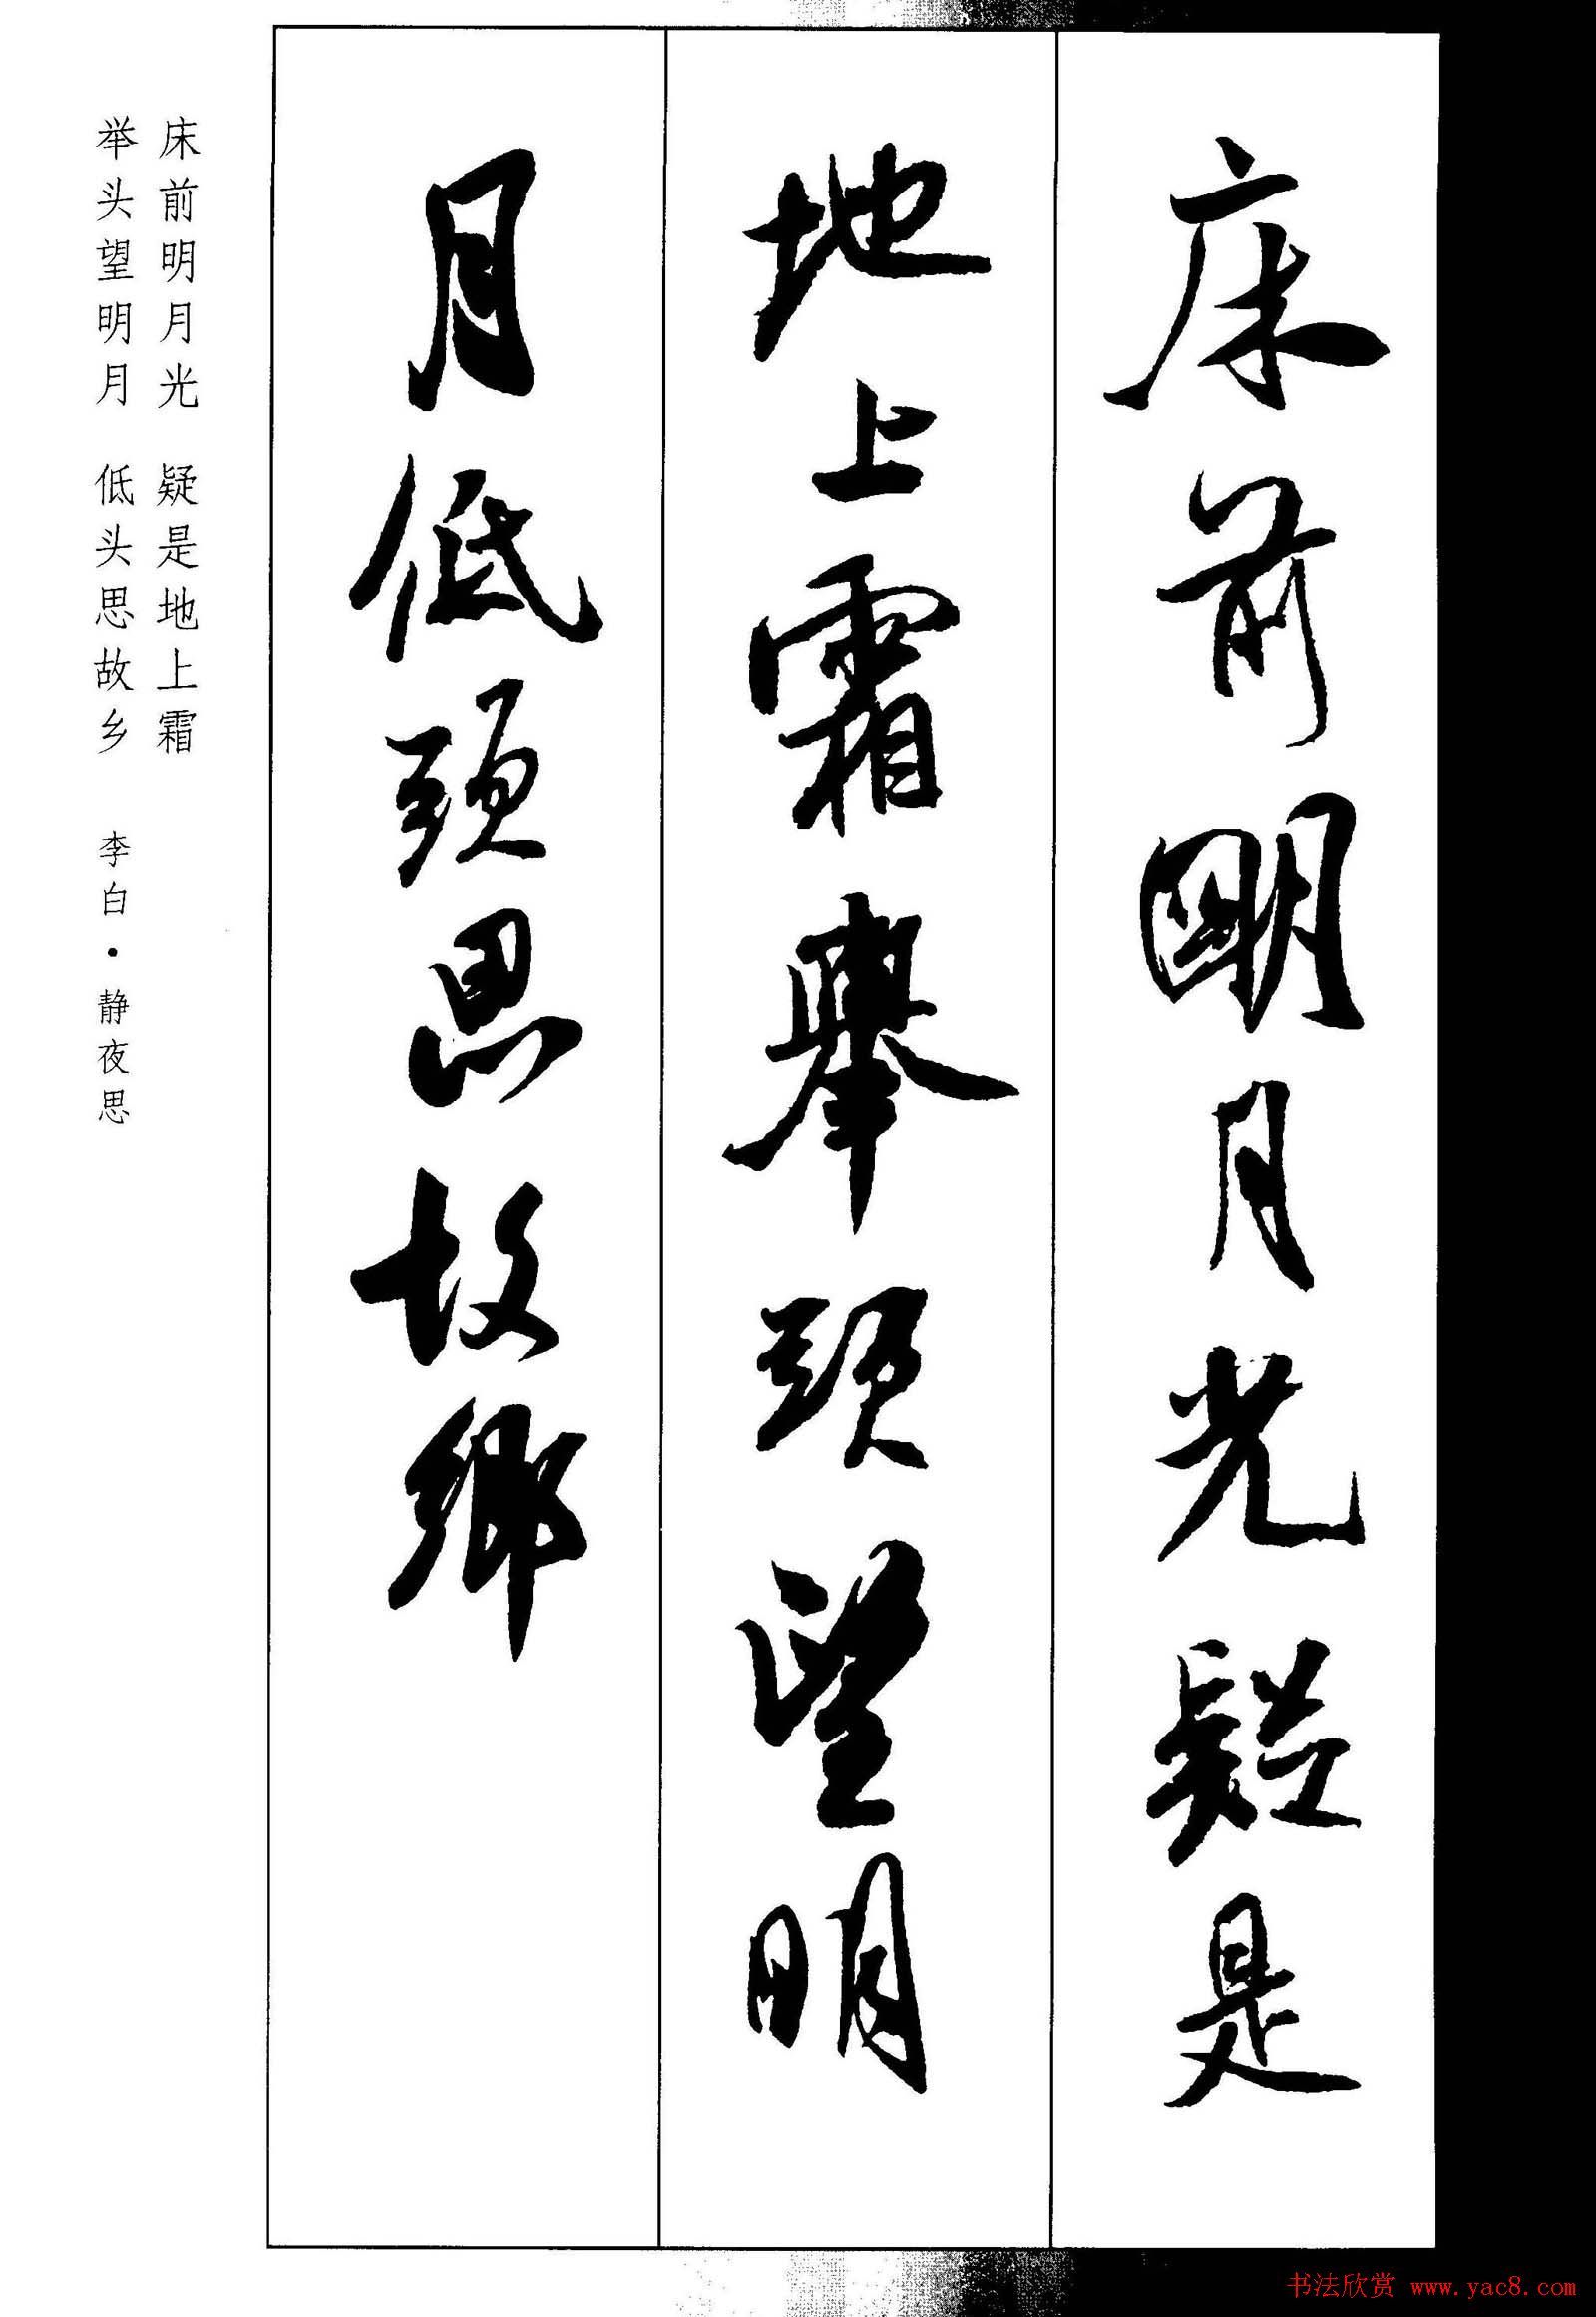 床前明月光疑是
地上霜舉頭望明
月低頭思故鄉
床前明月光 疑是地上霜
举头望明月 低头思故乡 李白·静夜思
书法欣赏 www.yac8.com